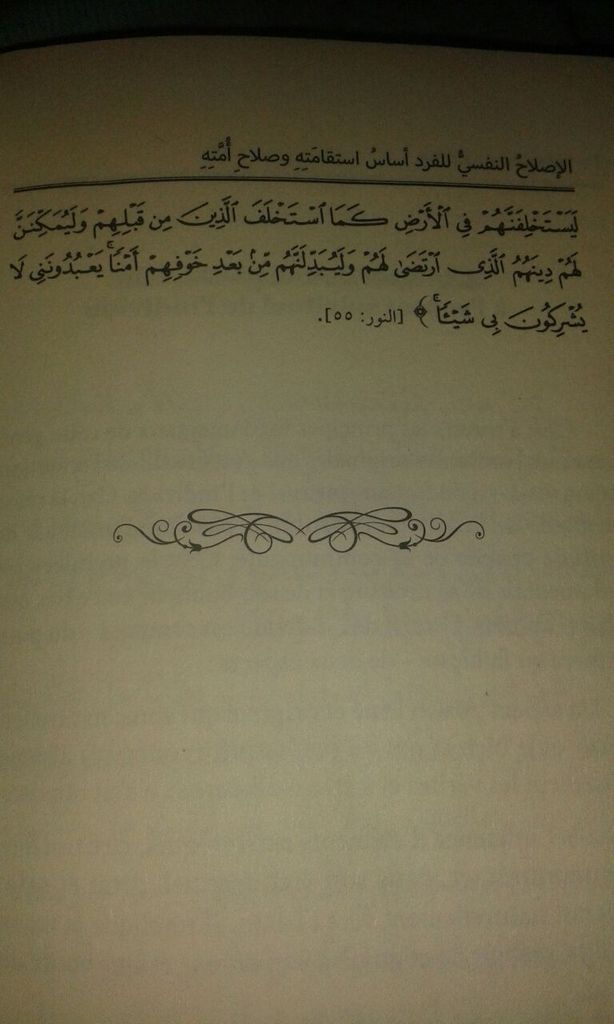 الإصلاحُ النفسيُّ للفرد أساسُ استقامَتِهِ وصلاحِ أُمَّتِهِ
لَيَسْتَخْلِفَنَّهُمْ فِي ٱلْأَرْضِ كَمَا ٱسْتَخْلَفَ ٱلَّذِينَ مِن قَبْلِهِمْ وَلَيُمَكِّنَنَّ
لَهُمْ دِينَهُمُ ٱلَّذِى ٱرْتَضَىٰ لَهُمْ وَلَيُبَدِّلَنَّهُم مِّنۢ بَعْدِ خَوْفِهِمْ أَمْنًاۚ يَعْبُدُونَنِى لَا
يُشْرِكُونَ بِى شَيْـًٔاۚ ﴾ [النور: ٥٥].